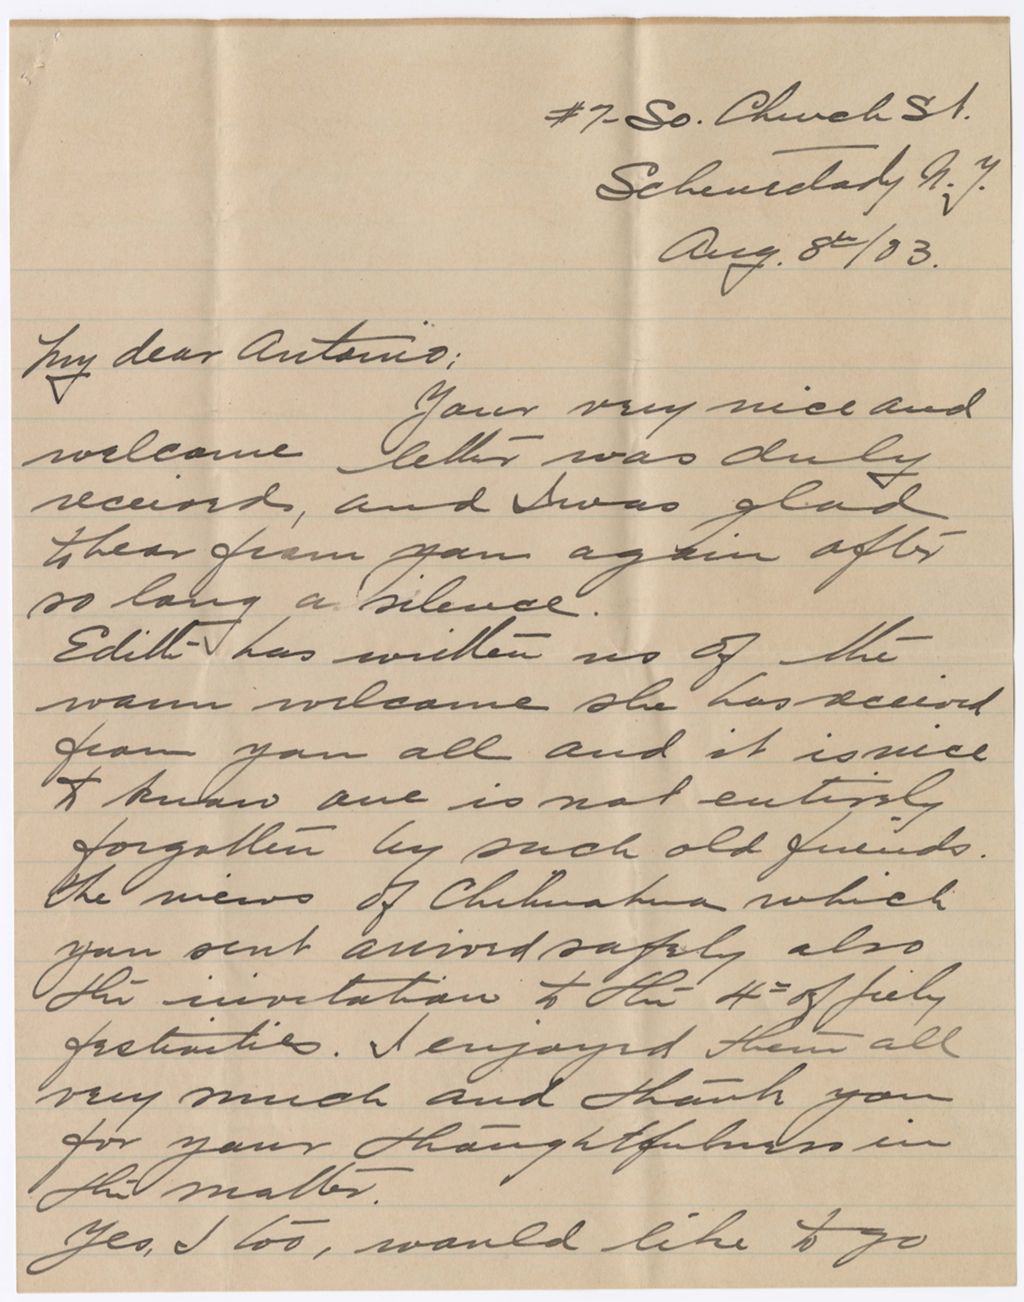 #7- So. Church St.
Schenectady N.Y.
Aug. 8th/03.
My dear Antonio;
Your very nice and
welcome letter was duly
received, and I was glad
to hear from you again after
so long a silence.
Edith has written us of the
warm welcome she has received
from you all and it is nice
to know one is not entirely
forgotten by such old friends.
The views of Chihuahua which
you sent arrived safely also
the invitation to the 4th of July
festivities. I enjoyed them all
very much and thank you
for your thoughtfulness in
the matter.
Yes, I too, would like to go